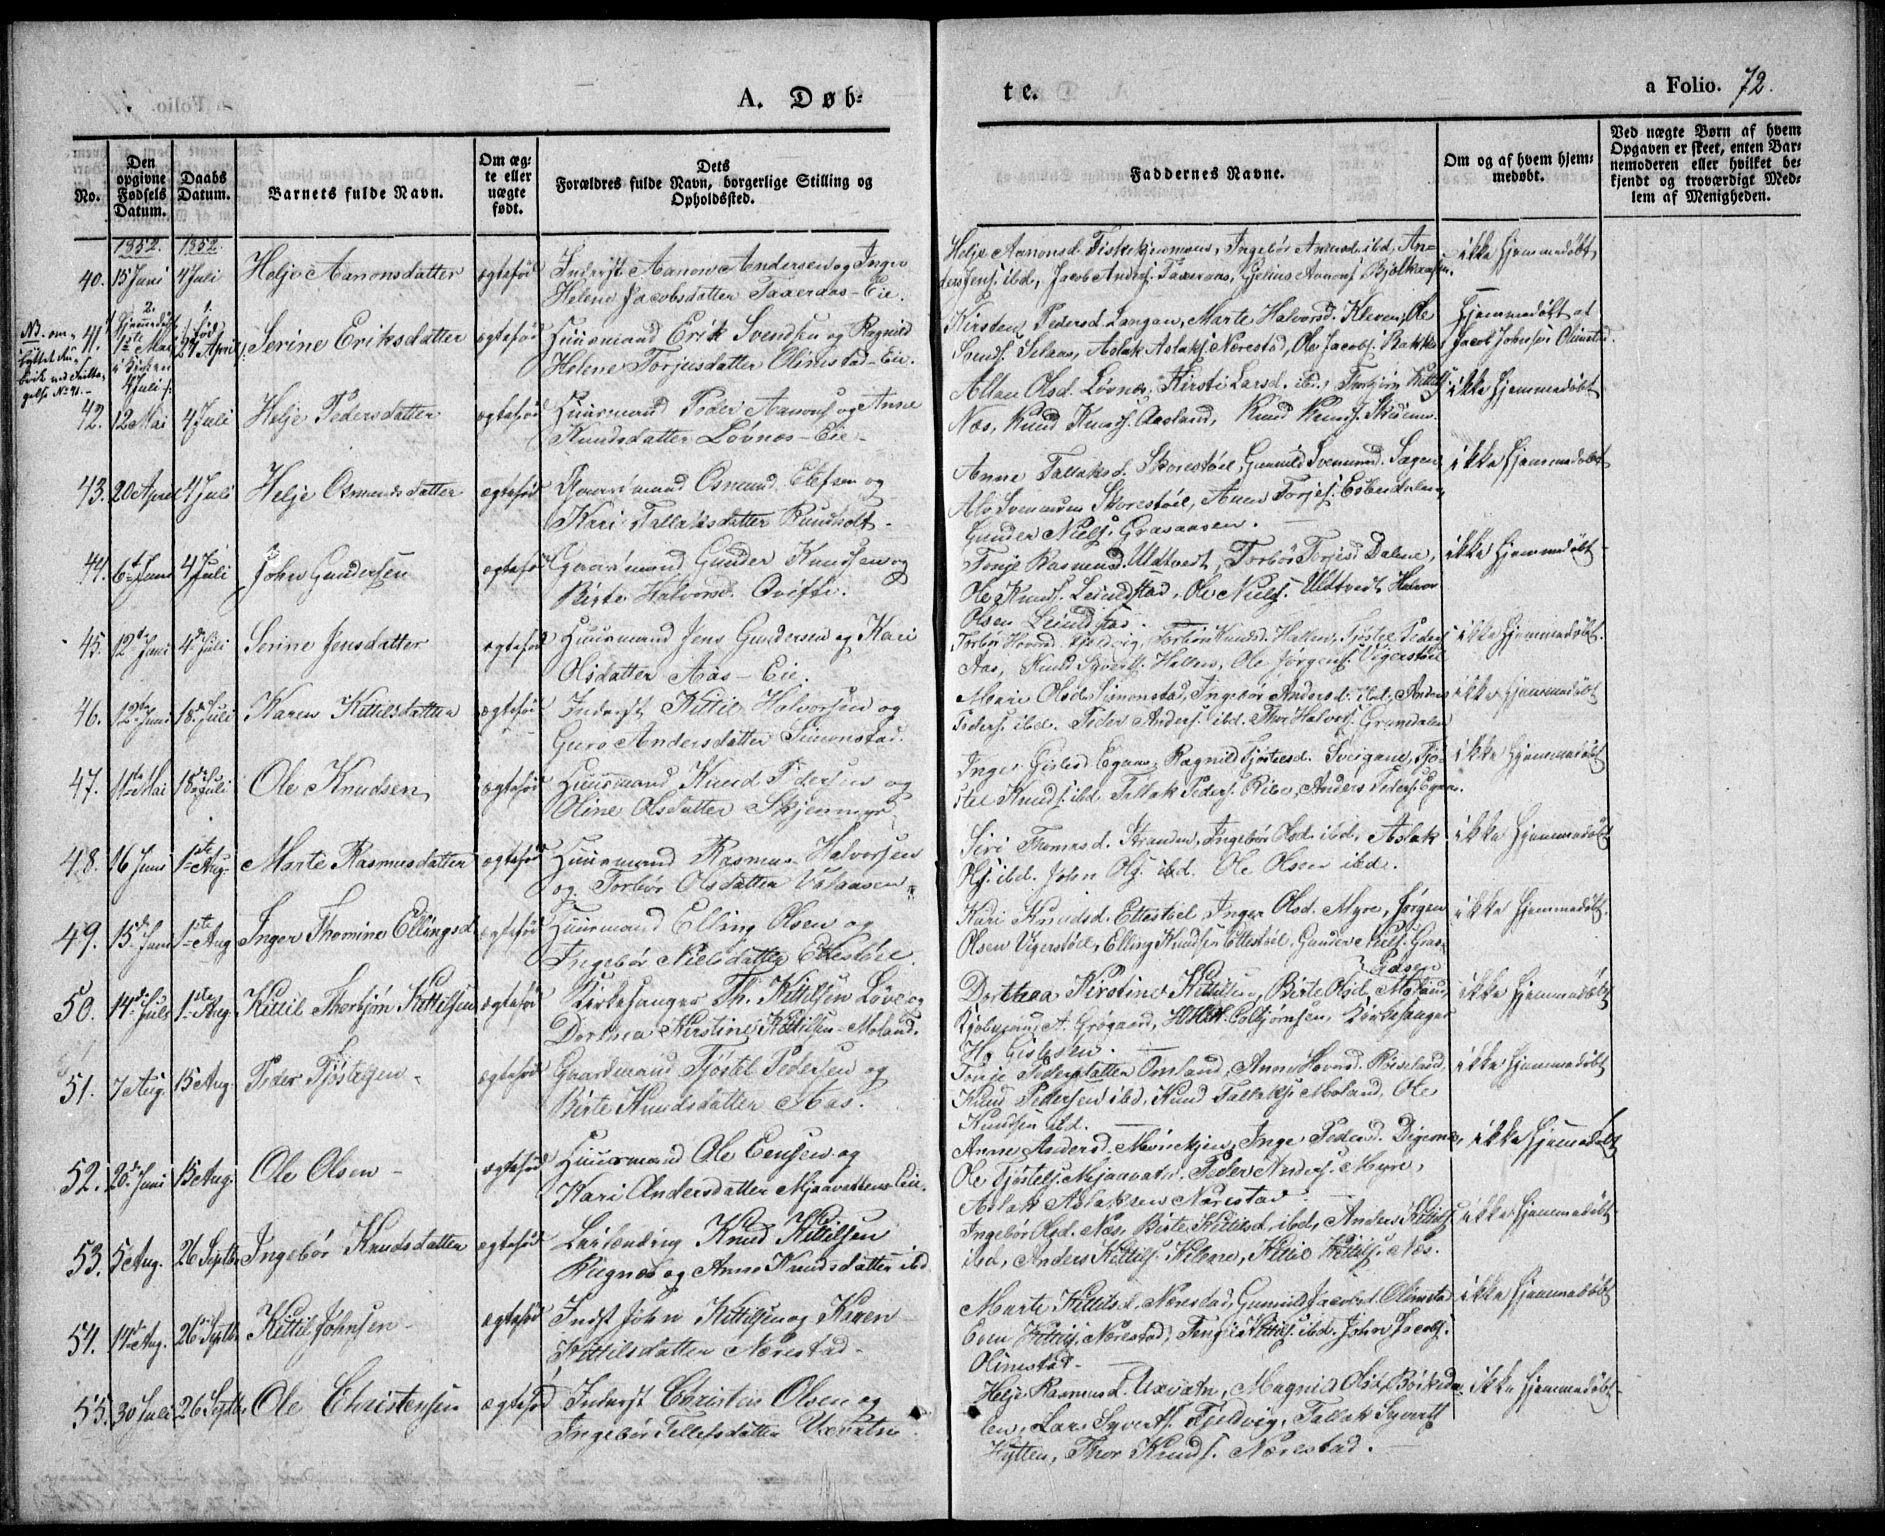 A. Døb-
te.
a Folio. 72.
No.
Den opgivne Fødsels Datum.
Daabs Datum.
Barnets fulde Navn.
Om ægte eller nægte født.
Dets Forældres fulde Navn, borgerlige Stilling og Opholdssted.
Faddernes Navne.
Om og af hvem hjemmedøbt.
Ved nægte Børn af hvem Opgaven er skeet, enten Barnemoderen eller hvilket bekjendt og troværdigt Medlem af Menigheden.
1852. 1852.
40. 15 Juni 4 Juli Helje Aanonsdatter ægtefød Inderst Aanon Andersen og Inger
Helene Jacobsdatter Taxeraas-Eie.
Helje Aanonsd. Fiskekjermoen, Ingebor Andersd. ibd. An-
ders Jens. ibd, Jacob Anders. Taxeraas, Gjelius Aanons. Bjelkaasen.
ikke hjemmedøbt
41. Serine Eriksdatter ægtefød Huusmand Erik Svendsen og Ragnild
Helene Torjusdatter Olimstad-Eie.
Kirsten Pedersd. Langan, Marte Halvorsd. Kleven, Ole
Svends. Selaas, Aslak Aslaks. Nærestad, Ole Jacobs. Bakke
Hjemmedøbt af
Jacob Johnsen Olimstad.
42. 12 Mai 4 Juli Helje Pedersdatter ægtefød Huusmand Peder Aanons. og Anne
Knudsdatter Løvnes-Eie.
Olsd. Løvnes, Kirsti Larsd. ibd., Thorbjørn Kittils.
Næs, Knud Knuds. Aasland, Knud Knuds.
ikke hjemmedøbt
43. 20 April 4 Juli Helje Osmundsdatter ægtefød Gaardmand Osmund Elefsen og
Kari Tallaksdatter Rundholt.
Anne Tallaksd. Skorestøel, Gunnild Svenunsd. Sagen,
Alv Svenunsen Skorestøel, Aanon Torjes. Espedalen,
Gunder Niels. Graaasen.
ikke hjemmedøbt
44. 6te Juni 4 Juli John Gundersen ægtefød Gaardmand Gunder Knudsen og
Birte Halvorsd. Qvifte.
Tonje Rasmusd. Uldtvedt, Torbor Torjesd. Dalene,
Ole Knuds. Leiulfstad, Ole Niels. Uldtvedt, Halvor
Olsen Leiulfstad.
ikke hjemmedøbt
45. 12te Juni 4de Juli Serine Jensdatter ægtefød Huusmand Jens Gundersen og Kari
Olsdatter Aas-Eie.
Torbor Hovarsd. Fjeldvig, Torbor Knudsd. Hallen, Tjøstel Peders.
Aas, Knud Syverts. Hallen, Ole Jørgens. Vigerstøel
ikke hjemmedøbt
46. 12te Juni 18de Juli Karen Kittilsdatter ægtefød Inderst Kittil Halvorsen og
Guro Andersdatter Simonstad.
Mari Olsd. Simonstad, Ingebor Andersd. ibd., Anders
Peders. ibd. Peder Anders. ibd. Thor Halvors. Grundalen
ikke hjemmedøbt
47. 11te Mai 18de Juli Ole Knudsen ægtefød Huusmand Knud Pedersen og
Oline Olsdatter Skjenmyr
Inger Gislesd. Egaas, Ragnild Tjøstelsd. Sveigane, Tjø-
stel Knuds. ibd. Tallak Peders. Rise, Anders Peders. Egaas.
ikke hjemmedøbt
48. 16 Juni 1ste Aug. Marte Rasmusdatter ægtefød Huusmand Rasmus Halvorsen
og Torbor Olsdatter Valaasen
Siri Thomasd. Stranden, Ingebor Olsd. ibd, Aslak
Ols. ibd. John Ols. ibd. Ole Olsen ibd.
ikke hjemmedøbt
49. 15de Juni 1ste Aug Inger Thomine Ellingsd. ægtefød Huusmand Elling Olsen og
Ingebor Nielsdatter Ettestøel.
Kari Knudsd. Ettestøel, Inger Olsd. Myre, Jørgen
Olsen Vigerstøel, Elling Knudsen Ettestøel, Gunder Niels. Graa-
aasen
ikke hjemmedøbt
50. 14de Juli 1ste Aug. Kittil Thorbjørn Kittilsen ægtefød Kirkesanger Th. Kittilsen Løve og
Dorthea Kirstine Kittilsen-Moland.
Dorthea Kirstine Kittilsen, Birte Olsd. Moland,
Kjøbmand A. Grøgaard, Colbjørnsen, Kirkesanger
H. Gislesen.
ikke hjemmedøbt
51. 7 Aug. 15 Aug. Peder Tjøstelsen ægtefød Gaardmand Tjøstel Pedersen og
Birte Knudsdatter Aas.
Tonje Pedersdatter Omland, Anne Hovarsd. Riseland,
Knud Pedersen ibd, Knud Tallaks. Moland, Ole
Knudsen ibd.
ikke hjemmedøbt
52. 20de Juni 15 Aug. Ole Olsen ægtefød Huusmand Ole Eensen og
Kari Andersdatter Mjaavatten-Eie.
Anne Andersd. Mørekjen, Inge Pedersd. Digernes,
Ole Tjøstels. Mjaavatn, Peder Anders. Myre,
Aslak Aslaksen Nærestad.
ikke hjemmedøbt
53. 5 Aug. 26 Septbr Ingebor Knudsdatter ægtefød Leilænding Knud Kittilsen
Hugnes og Anne Knudsdatter ibd.
Ingebor Olsd. Næs, Birte Kittilsd. ibd, Anders Kittils.
ibd, Anders Kittils. Kilane, Kittil Kittils. Næs.
ikke hjemmedøbt
54. 14de Aug. 26 Septbr Kittil Johnsen ægtefød Indst John Kittilsen og Karen
Kittilsdatter Nærestad.
Marte Kittilsd. Nærestad, Gunnild Jacobsd. Olimstad
Even Kittils. Nærestad, Kittils. ibd. John Jacobs.
Olimstad.
ikke hjemmedøbt
55. 30 Juli 26 Septbr Ole Christensen ægtefød Inderst Christen Olsen og
Ingebor Tellefsdatter Uxvatn.
Helje Rasmusd. Uxvatn, Magnild Olsd. Børkeda-
len, Lars Syverts. Fjeldvig, Tallak Syverts.
Hytten, Thor Knuds. Nærestad.
ikke hjemmedøbt